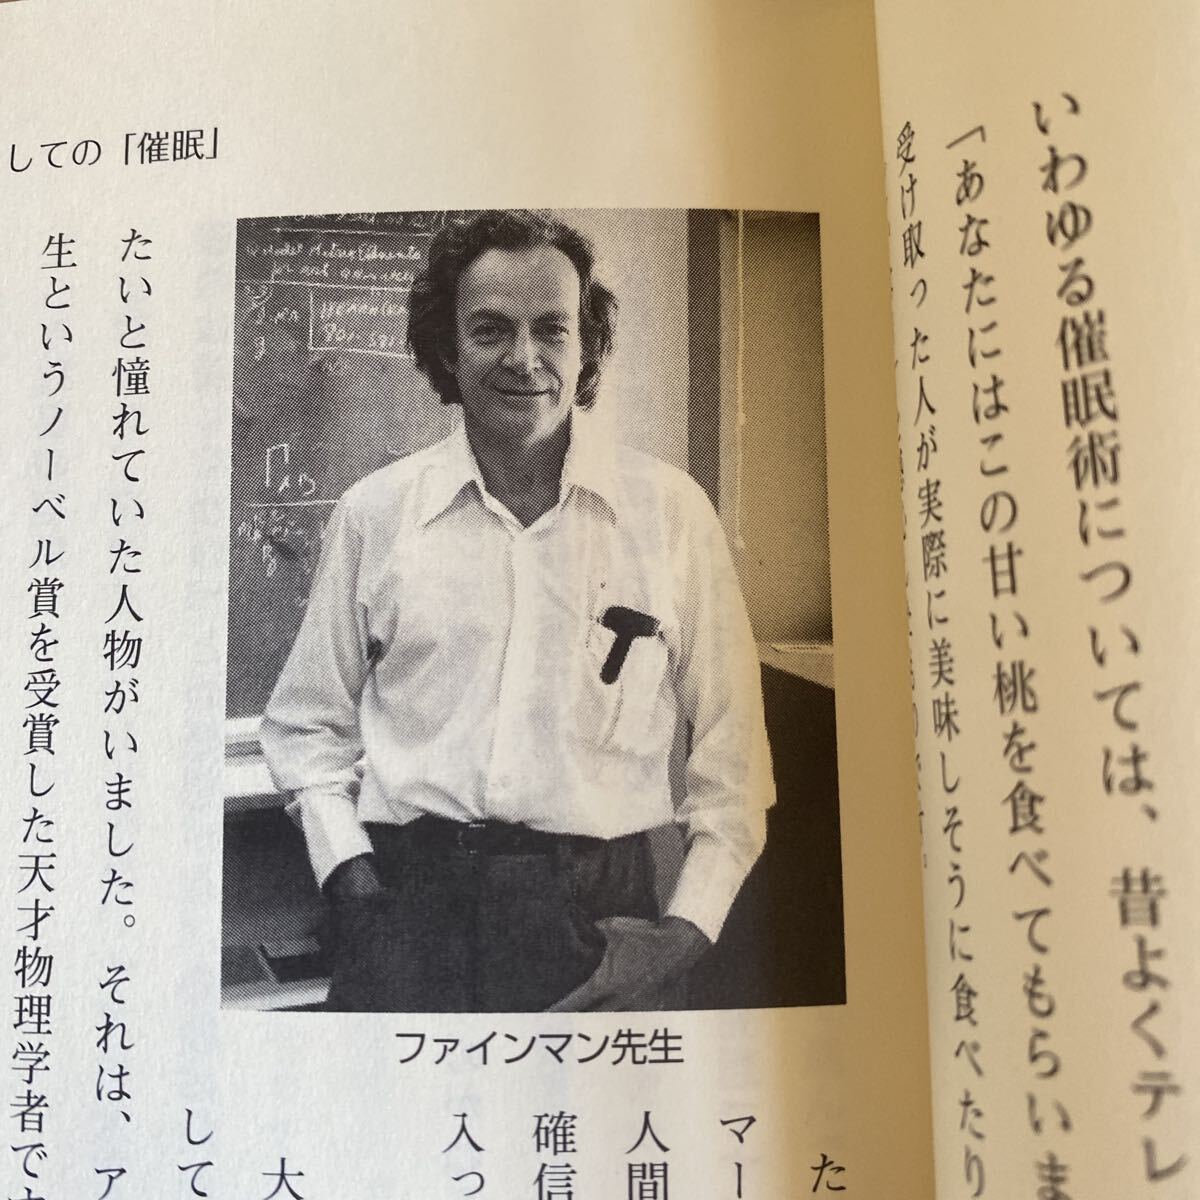 いわゆる催眠術については、昔よくテレ
「あなたにはこの甘い桃を食べてもらいま
受け取った人が実際に美味しそうに食べたり
しての「催眠」
ファインマン先生
た
マー
人間
確信
入っ
大
して
たいと憧れていた人物がいました。それは、ア
生というノーベル賞を受賞した天才物理学者で